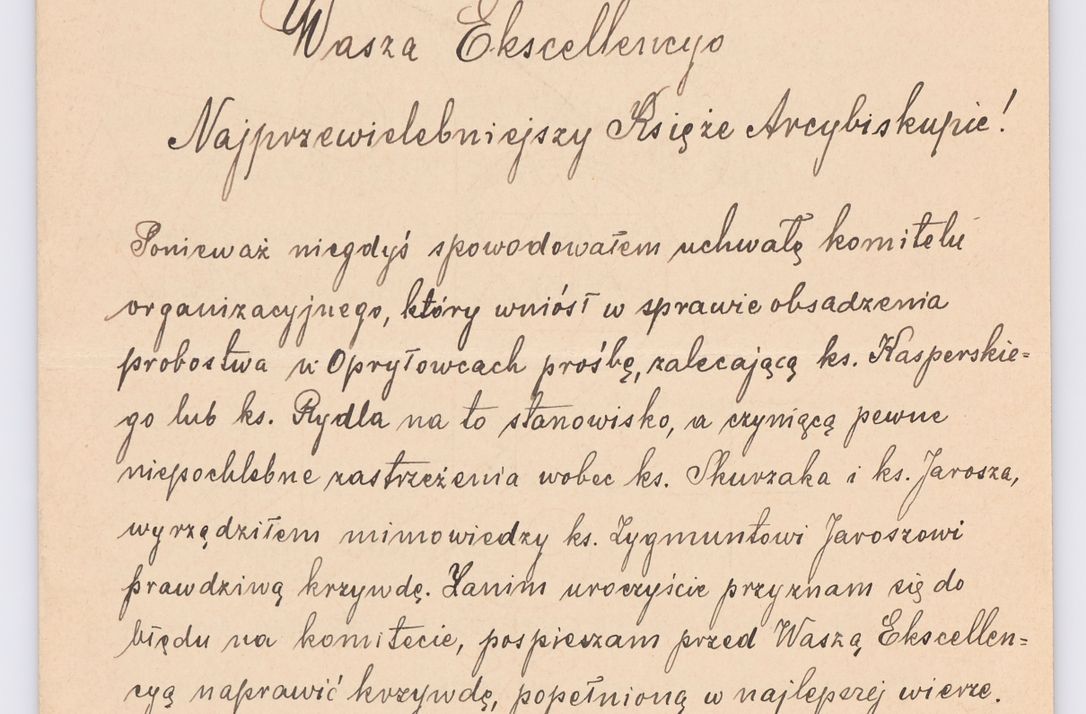 Wasza Ekscellencyo
Najprzewielebniejszy Księże Arcybiskupie!
Ponieważ niegdyś spowodowałem uchwałę komitetu
organizacyjnego, który wniósł w sprawie obsadzenia
probostwa w Opryłowcach prośbę, zalecającą ks. Kasperskie=
go lub ks. Rydla na to stanowisko, a czyniącą pewne
niepochlebne zastrzeżenia wobec ks. Skurzaka i ks. Jarosza,
wyrządziłem mimowiedzy ks. Zygmuntowi Jaroszowi
prawdziwą krzywdę. Zanim uroczyście przyznam się do
błędu na komitecie, pospieszam przed Waszą Ekscellen=
cyą naprawić krzywdę, popełnioną w najlepszej wierze.